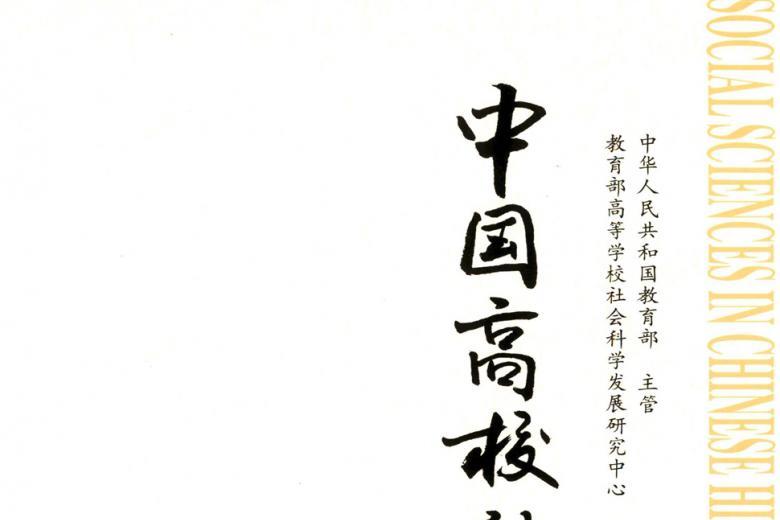 SOCIAL SCIENCES IN CHINESE
中华人民共和国教育部　主管
教育部高等学校社会科学发展研究中心
中国高校